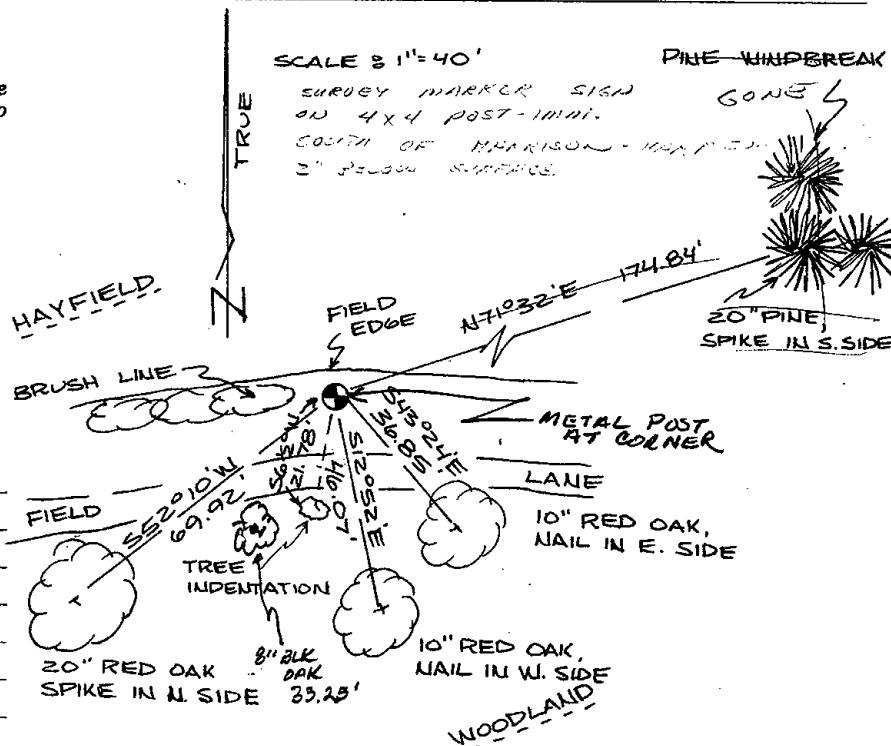 SCALE : 1"=40'
PINE WINDBREAK
GONE
SURVEY MARKER SIGN
ON 4X4 POST-
SOUTH OF HARRISON-
2" BELOW SURFACE
TRUE
N
HAYFIELD
FIELD
EDGE
N71°32'E 174.84'
20" PINE,
SPIKE IN S. SIDE
BRUSH LINE
METAL POST
AT CORNER
S52°10'W
69.92'
21.78'
S12°52'E
46.07'
S43°24'E
36.85
LANE
FIELD
10" RED OAK,
NAIL IN E. SIDE
TREE
INDENTATION
20" RED OAK
SPIKE IN N. SIDE
8" BLK
OAK
33.25'
10" RED OAK,
NAIL IN W. SIDE
WOODLAND